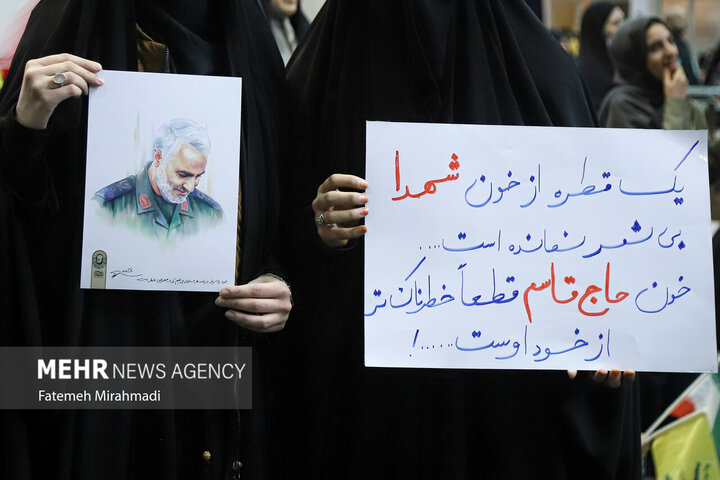 یک قطره از خون شهدا
بی ثمر نمانده است....
خون حاج قاسم قطعاً خطرناک‌تر
از خود اوست......!
MEHR NEWS AGENCY
Fatemeh Mirahmadi